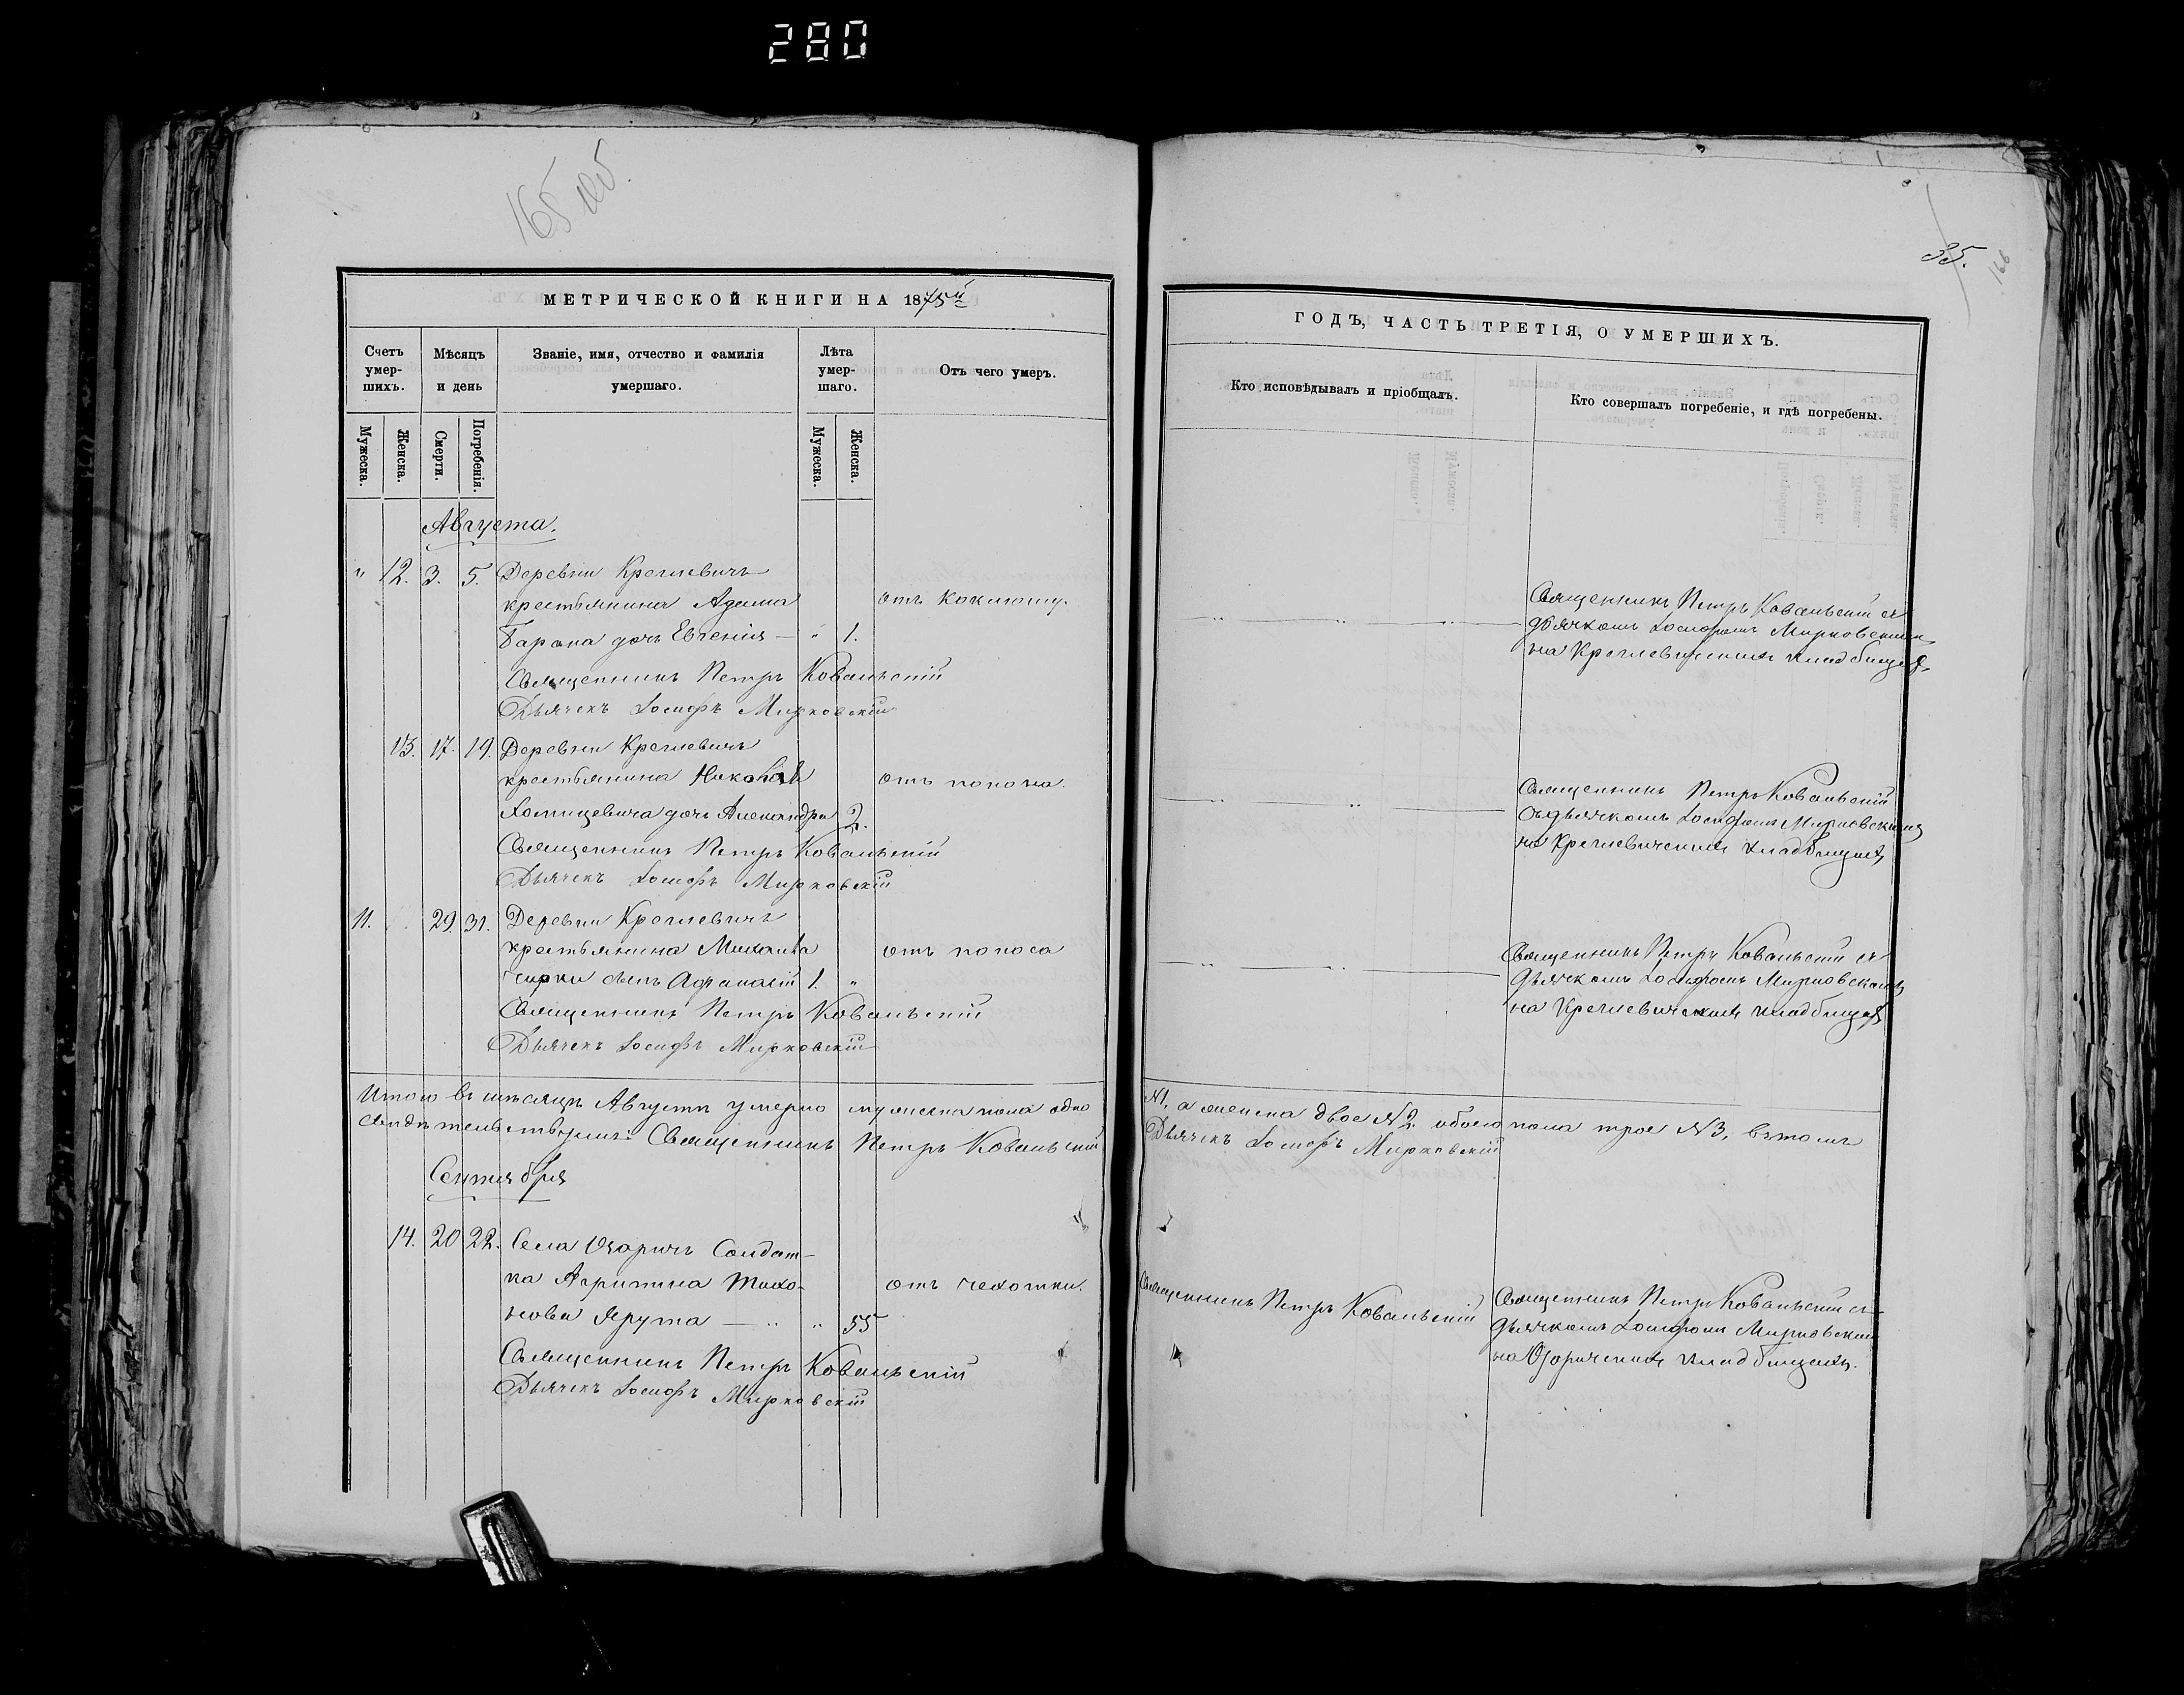 280
165 об.
МЕТРИЧЕСКОЙ КНИГИ НА 1875й
Счетъ умер-шихъ.
Мѣсяцъ и день
Званіе, имя, отчество и фамилія умершаго.
Лѣта умер-шаго.
Отъ чего умеръ.
Мужеска.
Женска.
Смерти.
Погребенія.
Мужеска.
Женска.
Августа.
" 12. 3. 5. Деревни Креглевичъ
крестьянина Адама
отъ коклюшу.
Барана дочь Евгенія — " 1.
Священникъ Петръ Ковальскій
Дьячекъ Іосифъ Мирковскій
13. 17. 19. Деревни Креглевичъ
крестьянина Николая
отъ поноса.
дочь Александра 2.
Священникъ Петръ Ковальскій
Дьячекъ Іосифъ Мирковскій
11. 29. 31. Деревни Креглевичъ
крестьянина Михаила
отъ поноса
Чирки сынъ Афанасій 1. "
Священникъ Петръ Ковальскій
Дьячекъ Іосифъ Мирковскій
Итого въ мѣсяцѣ Августѣ умерло мужеска пола одно
свидѣтельствуемъ: Священникъ Петръ Ковальскій
Сентября
14. 20 22. Села Озаричъ Солдат-
ка Агрипина Тихо-
отъ чехотки.
нова Ярута — " " 55
Священникъ Петръ Ковальскій
Дьячекъ Іосифъ Мирковскій
35.
166
ГОДЪ, ЧАСТЬ ТРЕТІЯ, О УМЕРШИХЪ.
Кто исповѣдывалъ и пріобщалъ.
Кто совершалъ погребеніе, и гдѣ погребены.
Священникъ Петръ Ковальскій съ
— " " " —
дьячкомъ Іосифомъ Мирковскимъ
на Креглевичскимъ кладбищѣ.
Священникъ Петръ Ковальскій
— " " —
съ дьячкомъ Іосифомъ Мирковскимъ
на Креглевичскимъ кладбищѣ
Священникъ Петръ Ковальскій съ
— " " —
дьячкомъ Іосифомъ Мирковскимъ
на Креглевичскимъ кладбищѣ
N1, а женска двое N2. обоего пола трое N3, въ томъ
Дьячекъ Іосифъ Мирковскій
Священникъ Петръ Ковальскій
Священникъ Петръ Ковальскій съ
дьячкомъ Іосифомъ Мирковским
на Озаричскимъ кладбищѣ.